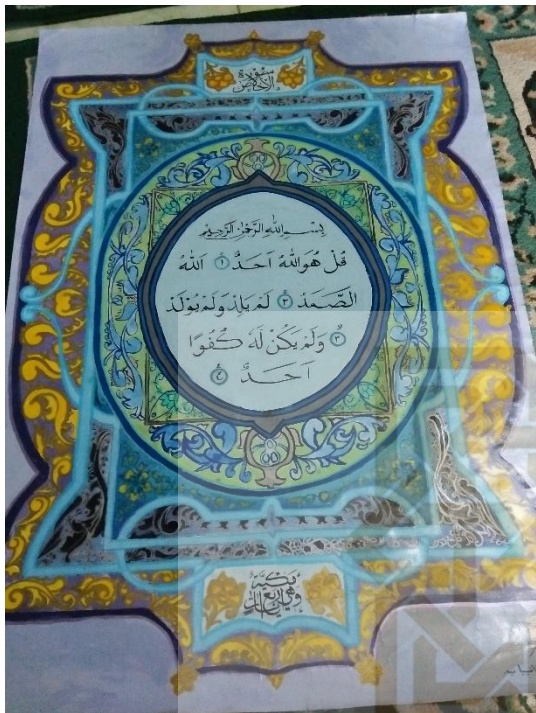 سورة
الإخلاص
بِسْمِ اللهِ الرَّحْمٰنِ الرَّحِيْمِ
قُلْ هُوَ اللهُ اَحَدٌ ۝١ اَللهُ
الصَّمَدُ ۝٢ لَمْ يَلِدْ وَلَمْ يُوْلَدْ
۝٣ وَلَمْ يَكُنْ لَهُ كُفُوًا
اَحَدٌ ۝٤
مكية
وهي أربع